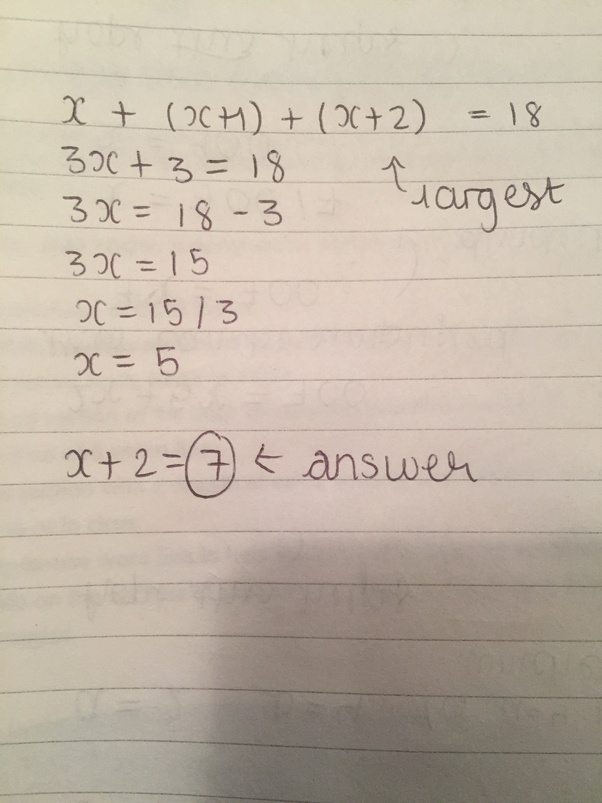 x + (x+1) + (x+2) = 18
3x + 3 = 18
↑ largest
3x = 18 - 3
3x = 15
x = 15 / 3
x = 5
x + 2 = 7 ← answer